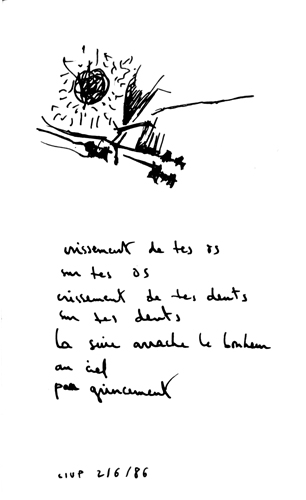 crissement de tes os
sur tes os
crissement de tes dents
sur tes dents
la suie arrache le bonheur
au ciel
par grincement
CIUP 2/6/86